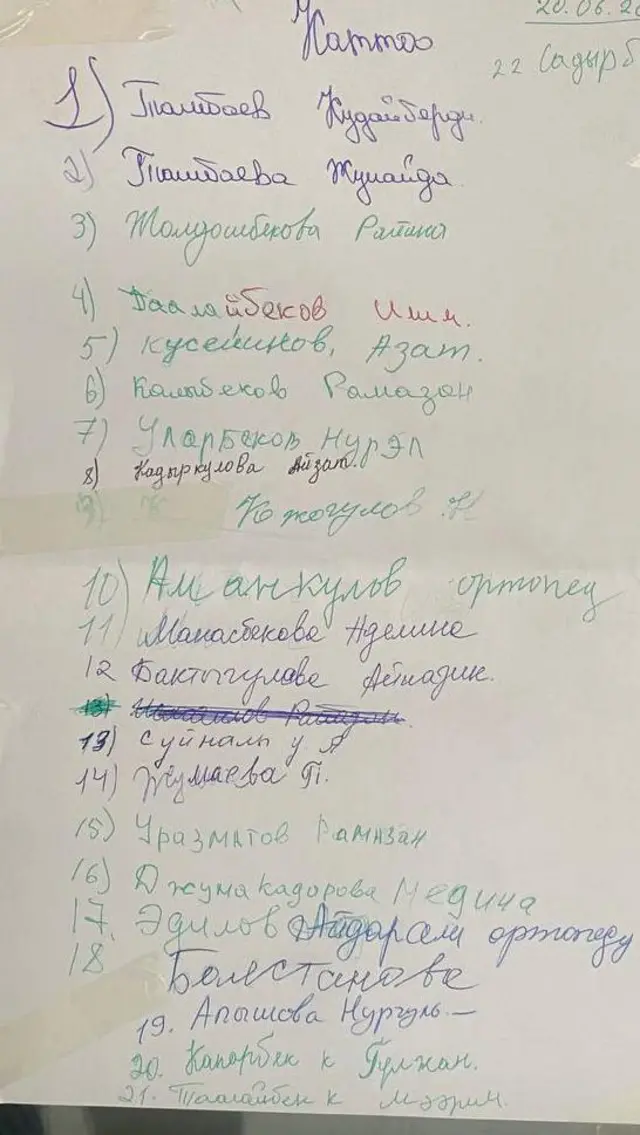 20.06.20
Каттоо
22 Садырб
1) Талибаев Кудайберди.
2) Талибаева Жунайда
3) Жолдошбекова Раяна
4) Таалайбеков Имм.
5) Кусеинов, Азат.
6) Калыбеков Рамазан
7) Уларбеков Нурэл
8) Кадыркулова Айзат.
9) К Кожогулов Н
10) Аманкулов ортопед
11) Манасбекова Аделина
12 Бактыгулова Айпадик.
13)
13) Суйналы у А
14) Жумаева П.
15) Уразматов Рамазан
16) Джумакадорова Медина
17. Эдилов Айдарали ортопеду
18 Болестанова
19. Апышова Нургуль —
20. Капарбек к Гулжан.
21. Таалайбек к Мээрим.